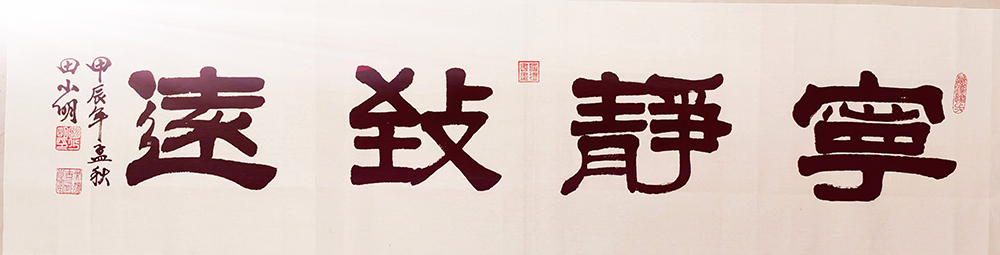 寧靜致遠
甲辰年孟秋
田小明